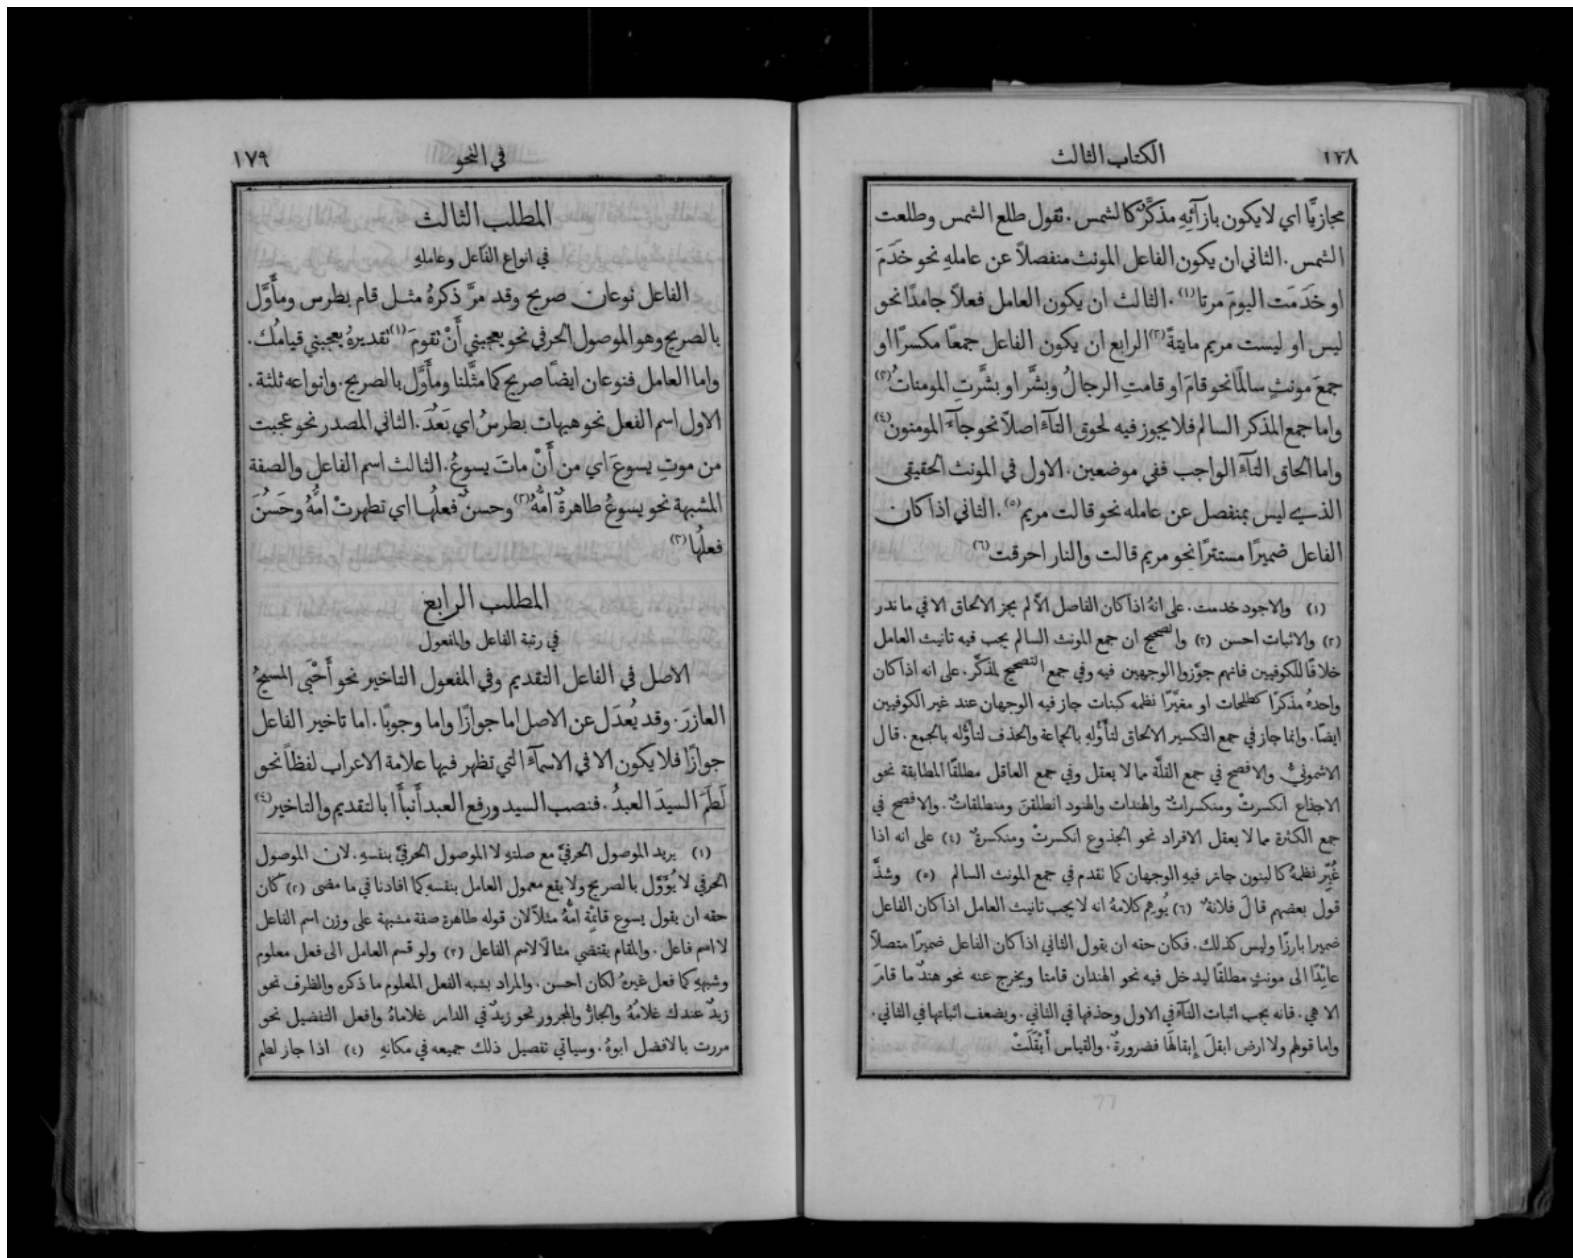 ١٢٨
الكتاب الثالث
مجازيًّا اي لا يكون بازآئِهِ مذكَّرٌ كالشمس. تقول طلع الشمس وطلعت
الشمس. الثاني ان يكون الفاعل المونث منفصلاً عن عاملهِ نحو خَدَمَ
او خَدَمَت اليومَ مرتا (١). الثالث ان يكون العامل فعلاً جامدًا نحو
ليس او ليست مريم مايتةً (٢) الرابع ان يكون الفاعل جمعًا مكسرًا او
جمعَ مونثٍ سالمًا نحو قامَ او قامتِ الرجالُ وبشَّر او بشَّرتِ المومناتُ (٣)
واما جمع المذكر السالم فلا يجوز فيه لحوق التآءِ اصلاً نحو جآءَ المومنون (٤)
واما الحاق التآءِ الواجب ففي موضعين. الاول في المونث الحقيقي
الذي ليس بمنفصل عن عامله نحو قالت مريم (٥). الثاني اذا كان
الفاعل ضميرًا مستترًا نحو مريم قالت والنار احرقت (٦)
(١) والاجود خدمت. على انهُ اذا كان الفاصل الاَّ لم يجز الالحاق الا في ما ندر
(٢) والاثبات احسن (٣) والصحيح ان جمع المونث السالم يجب فيه تانيث العامل
خلافًا للكوفيين فانهم جوَّزوا الوجهين فيه وفي جمع التصحيح لمذكَّر. على انه اذا كان
واحدهُ مذكرًا كطلحات او مغيَّرًا نظمه كبنات جاز فيه الوجهان عند غير الكوفيين
ايضًا. وانما جاز في جمع التكسير الالحاق لتأوّلهِ بالجماعة والحذف لتأوُّله بالجمع. قال
الاشمونيُّ والافصح في جمع القلَّة مما لا يعقل وفي جمع العاقل مطلقًا المطابقة نحو
الاجذاع انكسرتْ ومنكسراتٌ والهندات والهنود انطلقنَ ومنطلقاتٌ. والافصح في
جمع الكثرة مما لا يعقل الافراد نحو الجذوع انكسرتْ ومنكسرةٌ (٤) على انه اذا
غُيِّر نظمهُ كالبنون جاز فيهِ الوجهان كما تقدم في جمع المونث السالم (٥) وشذَّ
قول بعضهم قالَ فلانةُ (٦) يُوهِم كلامهُ انه لا يجب تانيث العامل اذا كان الفاعل
ضميرا بارزًا وليس كذلك. فكان حقه ان يقول الثاني اذا كان الفاعل ضميرًا متصلاً
عايدًا الى مونثٍ مطلقًا ليدخل فيه نحو الهندان قامتا ويخرج عنه نحو هندٌ ما قامَ
الا هي. فانه يجب اثبات التآءِ في الاول وحذفها في الثاني. ويضعف اثباتها في الثاني.
واما قولهم ولا ارض ابقلَ إِبقالَها فضرورةٌ. والقياس أَبْقَلَتْ
١٧٩
في النحو
المطلب الثالث
في انواع الفاعل وعاملهِ
الفاعل نوعان صريح وقد مرَّ ذكرهُ مثل قام بطرس ومأَوَّل
بالصريح وهو الموصول الحرفي نحو يعجبني أَنْ تقومَ (١) تقديرهُ يعجبني قيامُك.
واما العامل فنوعان ايضًا صريح كما مثَّلنا ومأَوَّل بالصريح. وانواعه ثلثة.
الاول اسم الفعل نحو هيهات بطرسُ اي بَعُدَ. الثاني المصدر نحو عجبت
من موتِ يسوعَ اي من أَنْ ماتَ يسوعُ. الثالث اسم الفاعل والصفة
المشبهة نحو يسوعُ طاهرةٌ امُّهُ (٢) وحسنٌ فعلُها اي تطهرتْ امُّهُ وحَسُنَ
فعلُها (٣)
المطلب الرابع
في رتبة الفاعل والمفعول
الاصل في الفاعل التقديم وفي المفعول التاخير نحو أَحْيَى المسيحُ
العازرَ. وقد يُعدَل عن الاصل اما جوازًا واما وجوبًا. اما تاخير الفاعل
جوازًا فلا يكون الا في الاسمآءِ التي تظهر فيها علامة الاعراب لفظًا نحو
لَطَمَ السيدَ العبدُ. فنصب السيد ورفع العبد أَنبأَا بالتقديم والتاخير (٤)
(١) يريد الموصول الحرفيَّ مع صلتهِ لا الموصول الحرفيَّ بنفسهِ. لان الموصول
الحرفي لا يُؤَوَّل بالصريح ولا يقع معمول العامل بنفسهِ كما افادنا في ما مضى (٢) كان
حقه ان يقول يسوع قايمةٌ امُّهُ مثلاً لان قوله طاهرة صفة مشبهة على وزن اسم الفاعل
لا اسم فاعل. والمقام يقتضي مثالاً لاسم الفاعل (٣) ولو قسم العامل الى فعل معلوم
وشبههِ كما فعل غيرهُ لكان احسن. والمراد بشبه الفعل المعلوم ما ذكره والظرف نحو
زيدٌ عندك غلامُهُ والجارّ والمجرور نحو زيدٌ في الدار غلاماهُ وافعل التفضيل نحو
مررت بالافضل ابوهُ. وسياتي تفصيل ذلك جميعه في مكانهِ (٤) اذا جاز لطم